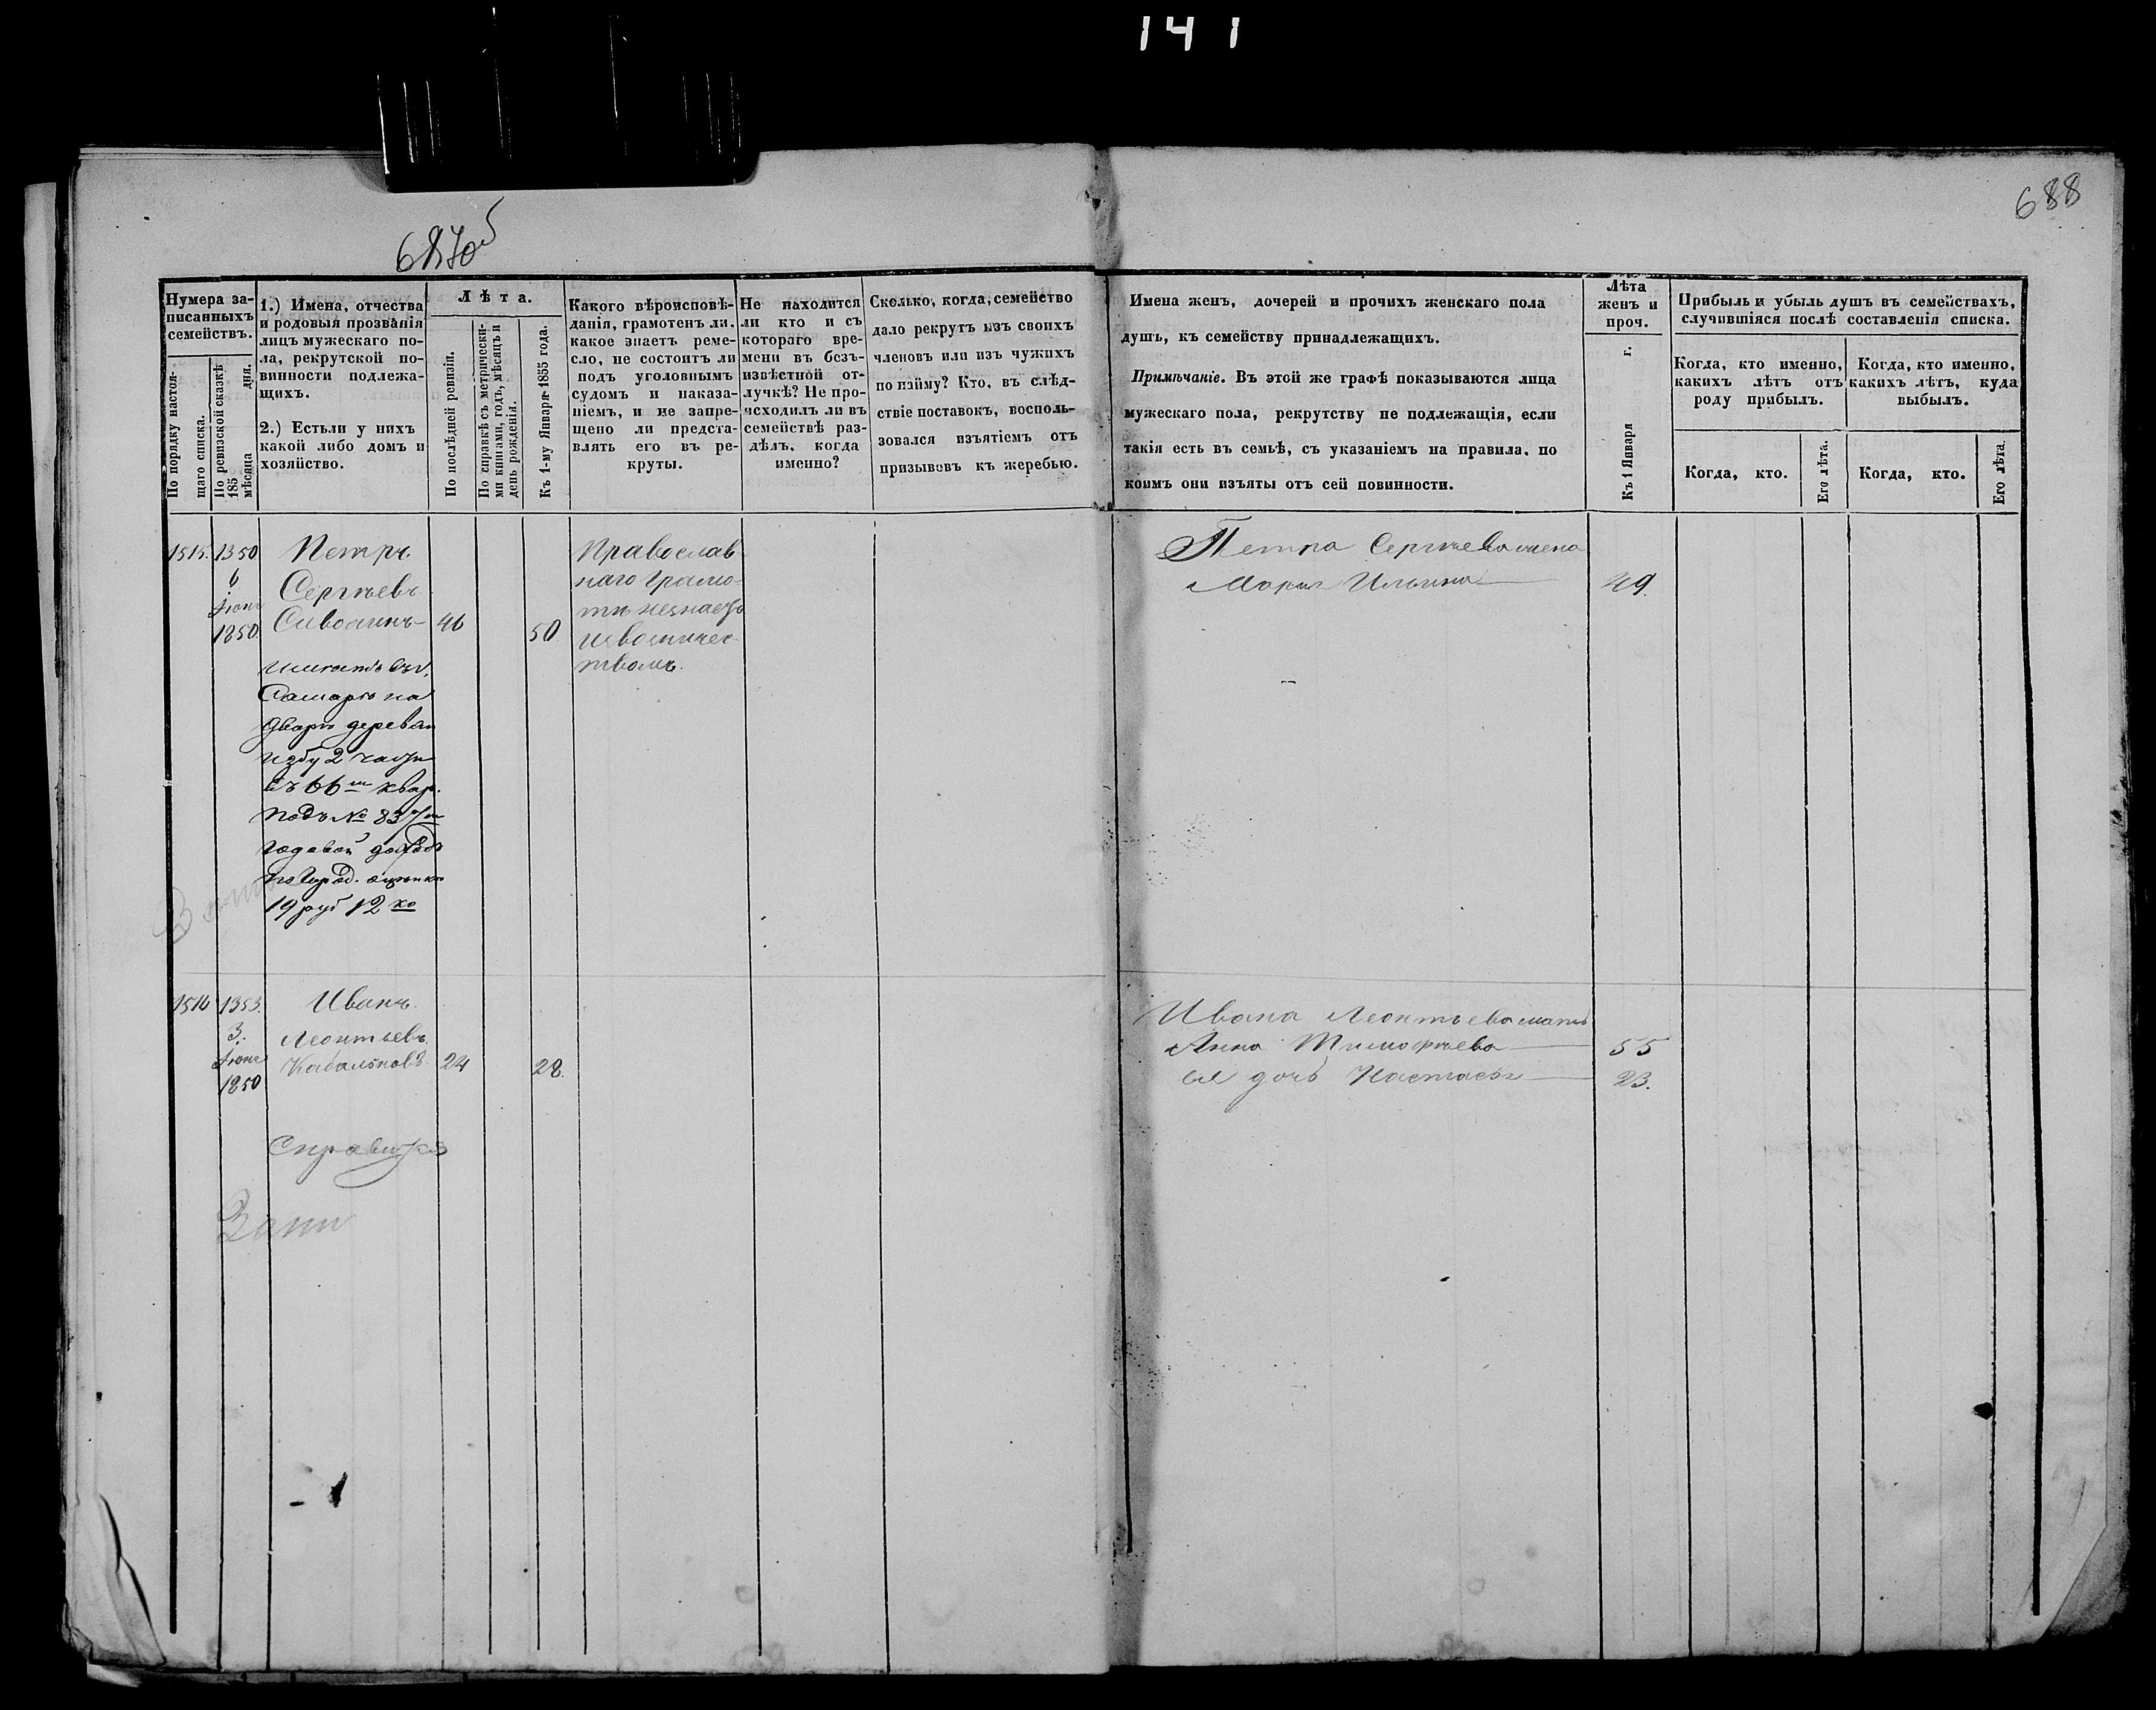 141
688
Нумера за-
писанныхъ
семействъ.
По порядку настоя-
щаго списка.
По ревизской сказкѣ
185 дня.
мѣсяца
1.) Имена, отчества
и родовыя прозванія
лицъ мужескаго по-
ла, рекрутской по-
винности подлежа-
щихъ.
2.) Естьли у нихъ
какой либо домъ и
хозяйство.
Лѣта.
По послѣдней ревизіи.
По справкѣ съ метрически-
ми книгами, годъ, мѣсяцъ и
день рожденія.
Къ 1-му Января 1855 года.
Какого вѣроисповѣ-
данія, грамотенъ ли.
какое знаетъ реме-
сло, не состоитъ ли
подъ уголовнымъ
судомъ и наказа-
ніемъ, и не запре-
щено ли предста-
влять его въ ре-
круты.
Не находится
ли кто и съ
котораго вре-
мени въ безъ-
извѣстной от-
лучкѣ? Не про-
исходилъ ли въ
семействѣ раз-
дѣлъ, когда
именно?
Сколько, когда, семейство
дало рекрутъ изъ своихъ
членовъ или изъ чужихъ
по найму? Кто, въ слѣд-
ствіе поставокъ, восполь-
зовался изъятіемъ отъ
призывовъ къ жеребью.
Имена женъ, дочерей и прочихъ женскаго пола
душъ, къ семейству принадлежащихъ.
Примѣчаніе. Въ этой же графѣ показываются лица
мужескаго пола, рекрутству не подлежащія, если
такія есть въ семьѣ, съ указаніемъ на правила, по
коимъ они изъяты отъ сей повинности.
Лѣта
женъ и
проч.
Къ 1 Января г.
Прибыль и убыль душъ въ семействахъ,
случившіяся послѣ составленія списка.
Когда, кто именно,
какихъ лѣтъ отъ
роду прибылъ.
Когда, кто именно,
какихъ лѣтъ, куда
выбылъ.
Когда, кто.
Его лѣта.
Когда, кто.
Его лѣта.
1515. 1350 Петръ
6 Сергѣевъ
1850 46 50
Православ
наго грамо-
тѣ незнаетъ
извощичес
твомъ.
Петра Сергѣева жена
Марья Ильина 49.
Самарѣ на
дворѣ деревян
избу 2 части
въ 66м квар.
подъ № 83
годовой доходъ
по Город. оценке
19 руб 12 ко
1516 1353. Иванъ
3. Леонтьевъ
1850 24 28.
Ивана Леонтьева мать
Анна Тимофѣева 55
ее дочь Настасья 23.